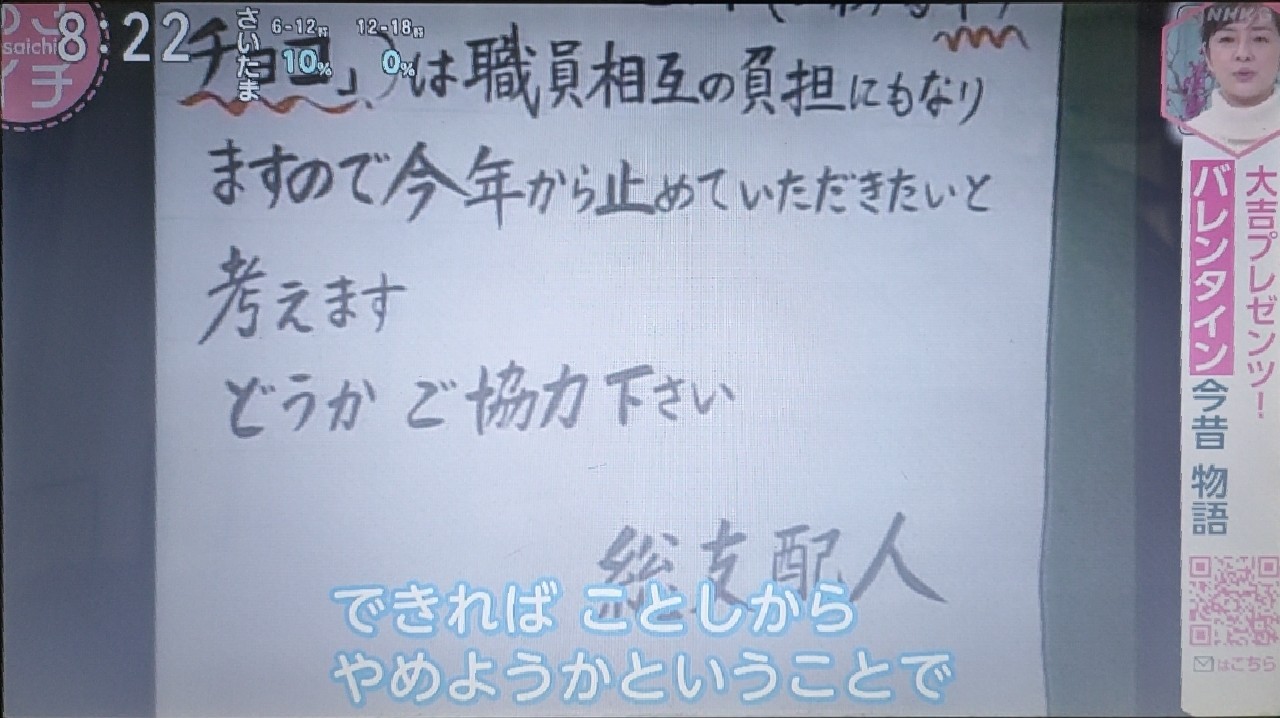 8:22
さいたま
6-12時
10%
12-18時
0%
saichi
イチ
NHK
チョコ」)は職員相互の負担にもなり
ますので今年から止めていただきたいと
考えます
どうか ご協力下さい
総支配人
できれば ことしから
やめようかということで
大吉プレゼンツ!
バレンタイン今昔 物語
はこちら